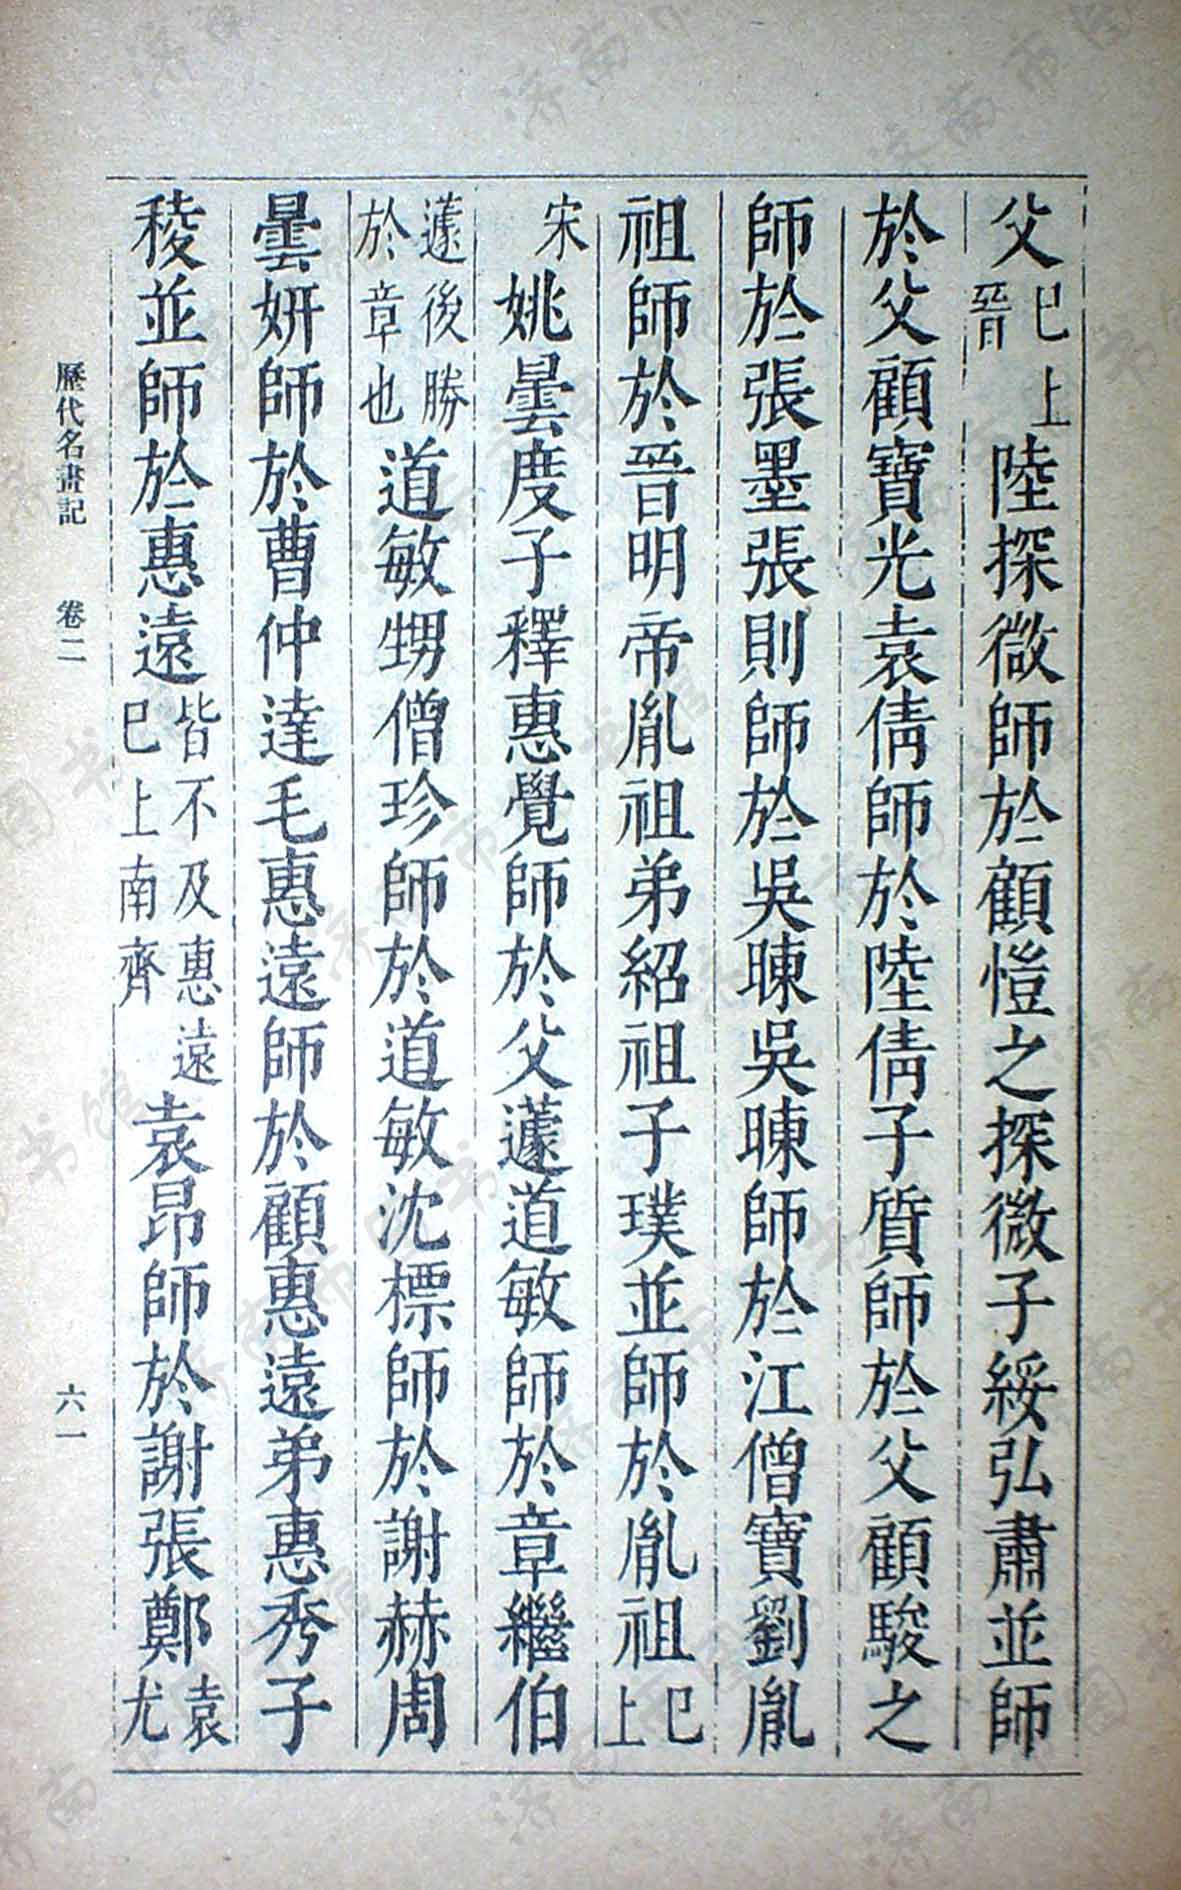 父已上晉陸探微師於顧愷之探微子綏弘肅並師
於父顧寶光袁倩師於陸倩子質師於父顧駿之
師於張墨張則師於吳暕吳暕師於江僧寶劉胤
祖師於晉明帝胤祖弟紹祖子璞並師於胤祖已上
宋姚曇度子釋惠覺師於父蘧道敏師於章繼伯
蘧後勝於章也道敏甥僧珍師於道敏沈標師於謝赫周
曇妍師於曹仲達毛惠遠師於顧惠遠弟惠秀子
稜並師於惠遠皆不及惠遠已上南齊袁昂師於謝張鄭袁尤
歷代名畫記 卷二 六一